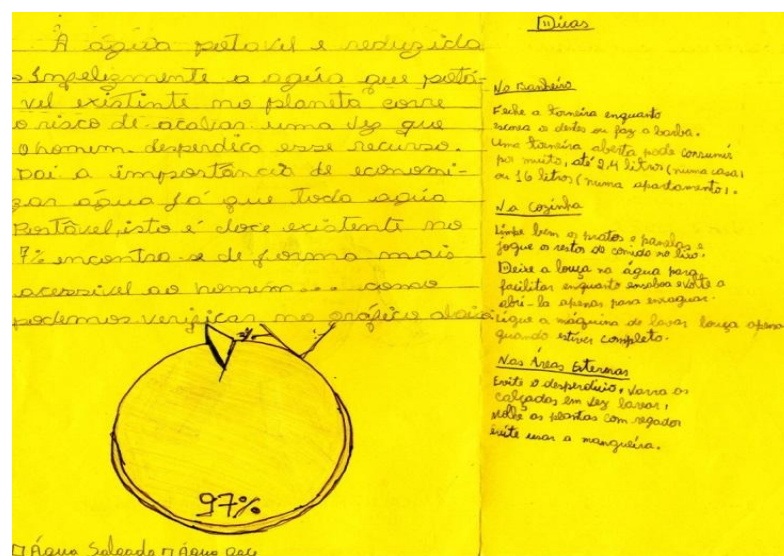 A agúa potavel e reduzida
Impelizmente a agúa que potá-
vel existente no planeta corre
o risco de acabar uma vez que
o homem desperdica esse recurso.
Dai a importância de economi-
zar agúa já que toda agúa
Postável, isto é doce existente no
7% encontra-se de forma mais
acessivel ao homem... como
podemos verificar no gráfico abaixo
3%
97%
Água Salgada Água doce
Dicas
No Banheiro
Feche a torneira enquanto
escova os detes ou faz a barba.
Uma torneira aberta pode consumir
por muito, até 2,4 litros (numa casa)
ou 16 litros (numa apartamento).
Na Cozinha
Limpe bem os pratos e panelas e
jogue os restos de comida no lixo.
Deixe a louça na água para
facilitar enquanto ensaboa e volte a
abri-la apenas para enxaguar.
Ligue a máquina de lavar louça apena
quando estiver completo.
Nas Áreas Externas
Evite o desperdício, varra as
calçadas em vez lavar,
Molhe as plantas com regador
évite usar a mangueira.